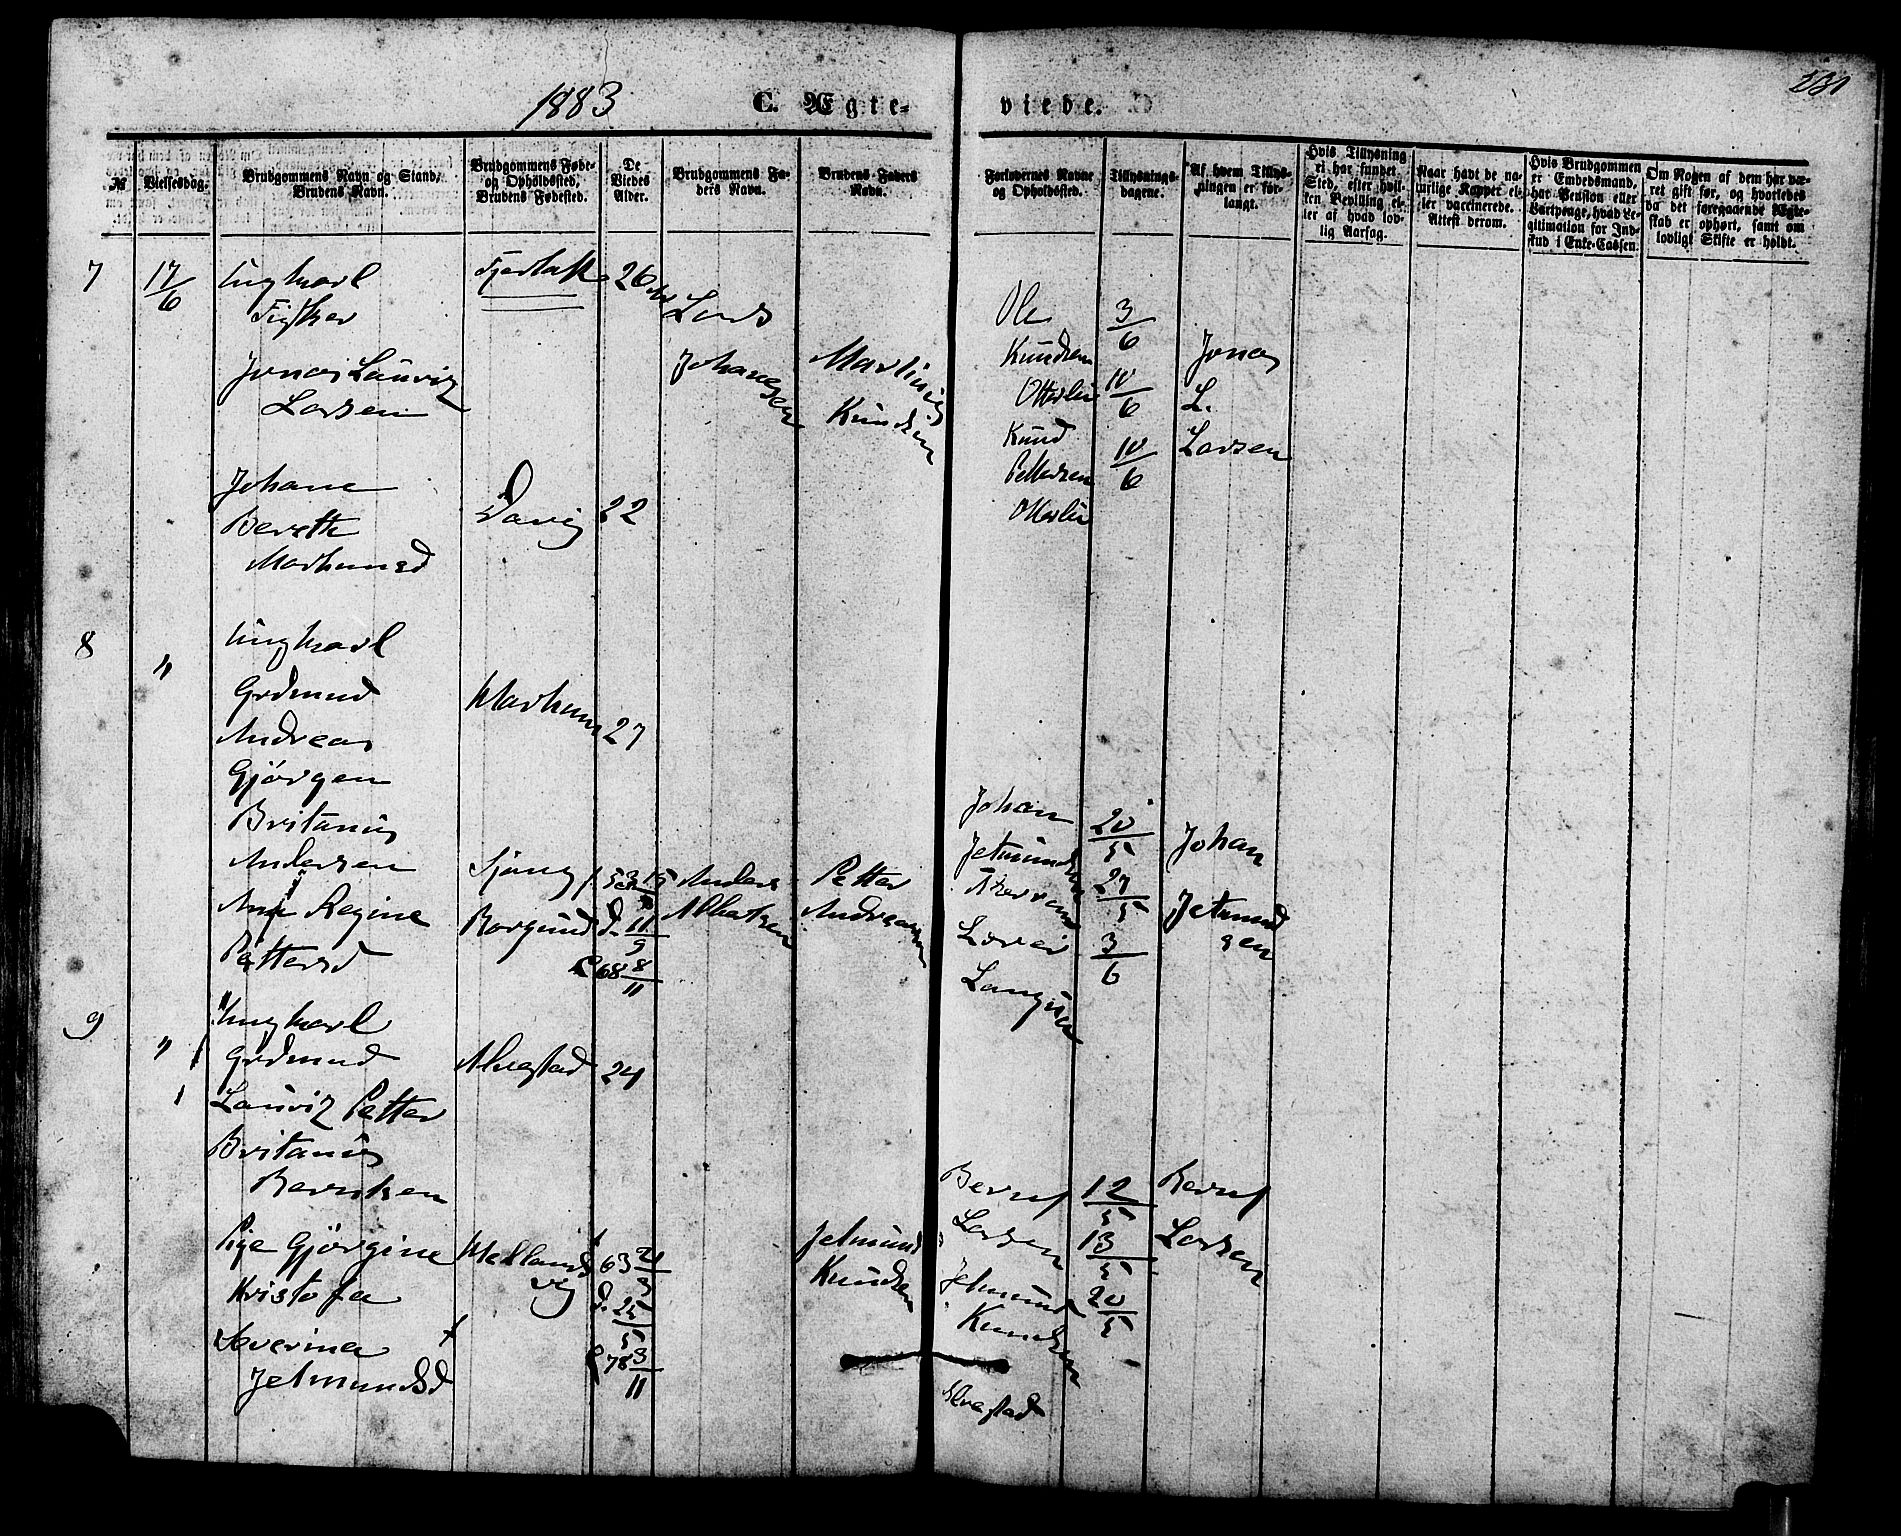 1883
C. Ægte-
viede.
231
№
Vielsesdag.
Brudgommens Navn og Stand,
Brudens Navn.
Brudgommens Føde-
og Opholdssted,
Brudens Fødested.
De
Viedes
Alder.
Brudgommens Fa-
ders Navn.
Brudens Faders
Navn.
Forlovernes Navne
og Opholdssted.
Tillysnings-
dagene.
Af hvem Tillys-
ningen er for-
langt.
Hvis Tillysning
ei har fundet
Sted, efter hvil-
ken Bevilling el-
ler af hvad lov-
lig Aarsag.
Naar havt de na-
turlige Kopper el-
ler vaccinerede.
Attest derom.
Hvis Brudgommen
er Embedsmand,
har Pension eller
Vartpenge, hvad Le-
gitimation for Ind-
skud i Enke-Cassen.
Om Nogen af dem har væ-
ret gift før, og hvorledes
da det foregaaende Ægte-
skab er ophørt, samt om
lovligt Skifte er holdt.
7
17/6
Ungkarl
Fisker
Jonas Lauviz
Larsen
26
Lars
Johanesen
Martinus
Knudsen
Ole
Knudsen
Otterlei
Knud
Pettersen
Otterlei
3/6
10/6
10/6
Jonas
L.
Larsen
Johane
Bereth
Davig
22
8
"
Ungkarl
Grdmand
Andreas
Gjörgen
Britanus
Andersen
27
Ane Regine
Pettersd
Borgund
d. 11/9
68 8/11
Anders
Petter
Andreassen
Johan
Jetmundsen
20/5
27/5
3/6
Johan
Jetmund
sen
9
"
Ungkarl
Grdmand
Lauviz Petter
Britanus
Berntsen
24
Gjörgine
Kristofa
Severina
Jetmundsd
63
d. 25/5
78 3/11
Jetmund
Knudsen
Bernt
Larsen
Jetmund
Knudsen
12/5
13/5
20/5
Bernt
Larsen